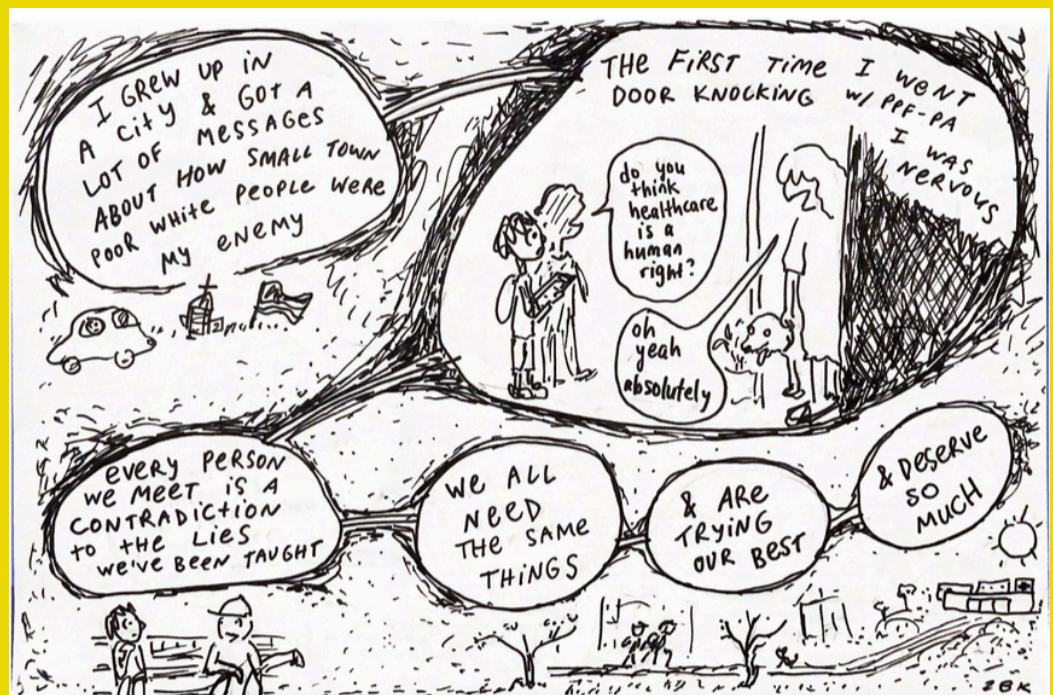 I GREW UP IN
A CITY & GOT A
LOT OF MESSAGES
ABOUT HOW SMALL TOWN
POOR WHITE PEOPLE WERE
MY ENEMY
THE FIRST TIME I WENT
DOOR KNOCKING W/ PPF-PA
I WAS
NERVOUS
do you
think
healthcare
is a
human
right?
oh
yeah
absolutely
EVERY PERSON
WE MEET IS A
CONTRADICTION
to tHE LIES
WE'VE BEEN TAUGHT
WE ALL
NEED
THE SAME
THINGS
& ARE
TRYING
OUR BEST
& DESERVE
SO
MUCH